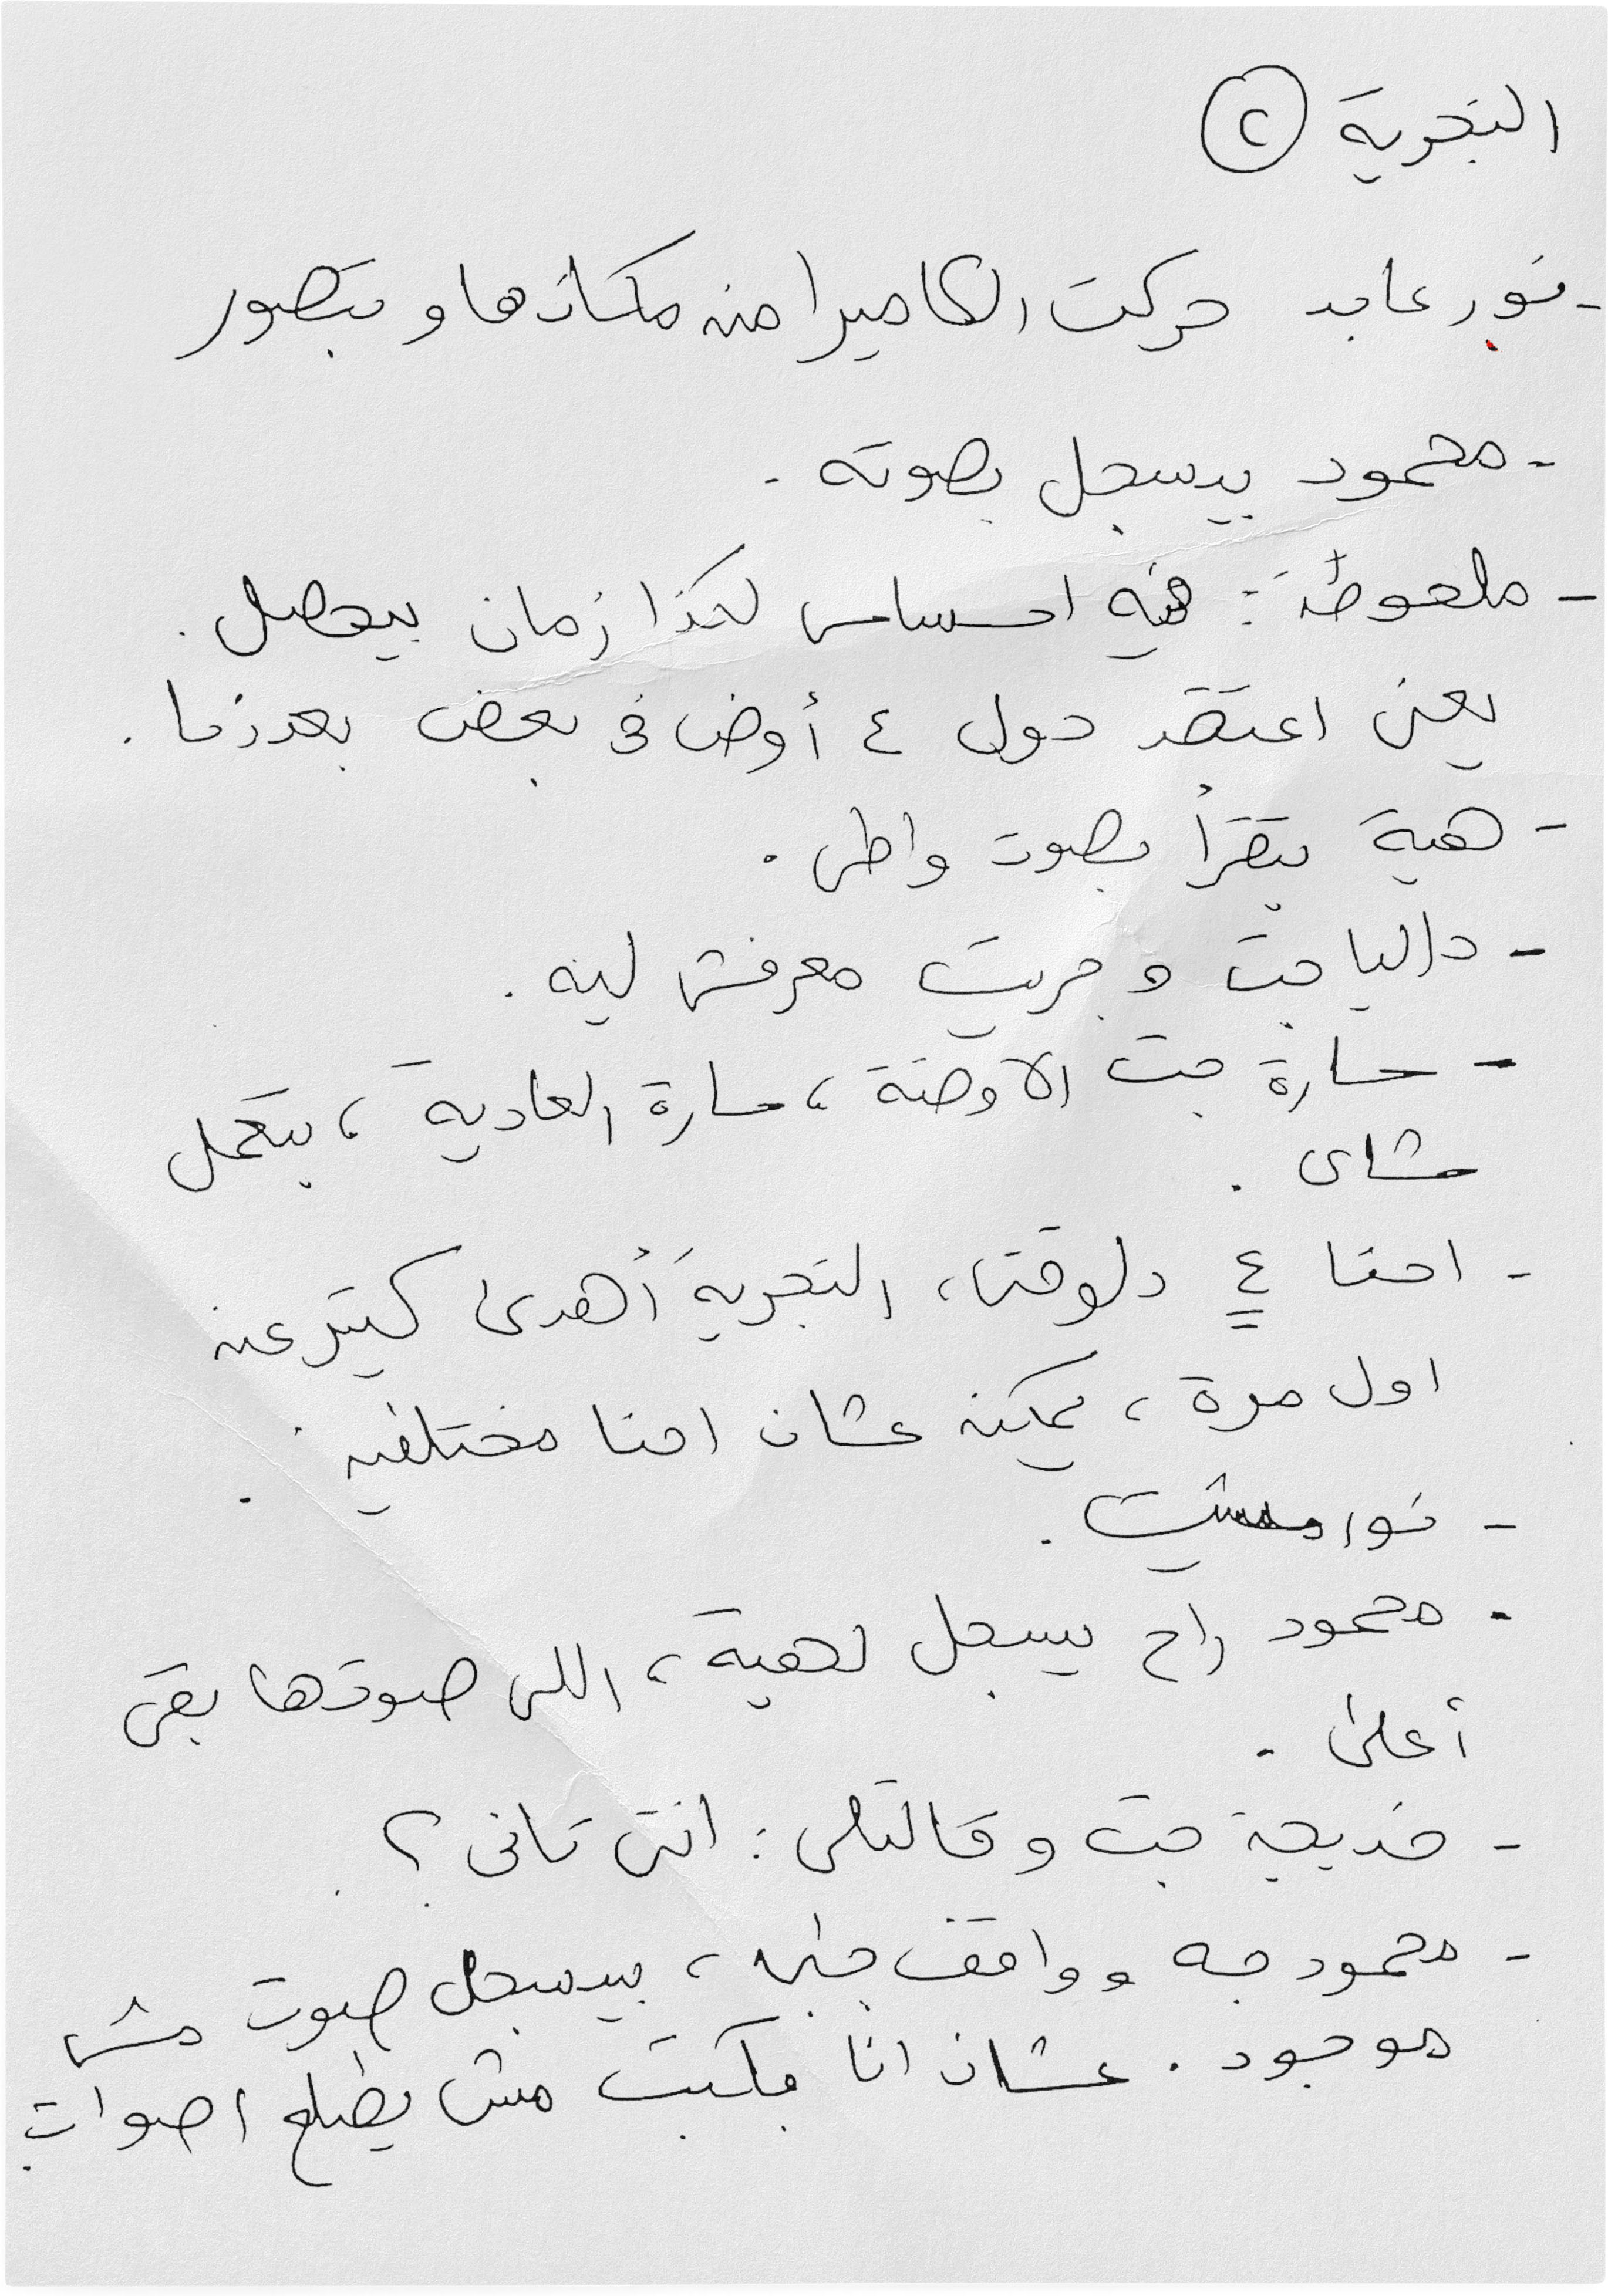 التجربة ②
- نور عابد حركت الكاميرا من مكانها و بتصور
- محمود بيسجل بصوته .
- ملحوظة : فيه احساس لكذا زمان بيحصل .
يعني اعتقد دول ٤ أوض في بعض بعدزما .
- هبة بتقرأ بصوت واطي .
- داليا جت و جريت معرفش ليه .
- سارة جت الأوضة ، سارة العادية ، بتعمل
شاي .
- احنا ٤ دلوقتى ، التجربة أهدى كتير عن
اول مرة ، يمكن عشان احنا مختلفين .
- نور مشيت .
- محمود راح يسجل لهبة ، اللى صوتها بقى
أعلى .
- خديجة جت و قالتلى : انتى تانى ؟
- محمود جه و واقف جنبى ، بيسجل صوت مش
موجود . عشان انا بكتب مش بطلع اصوات .